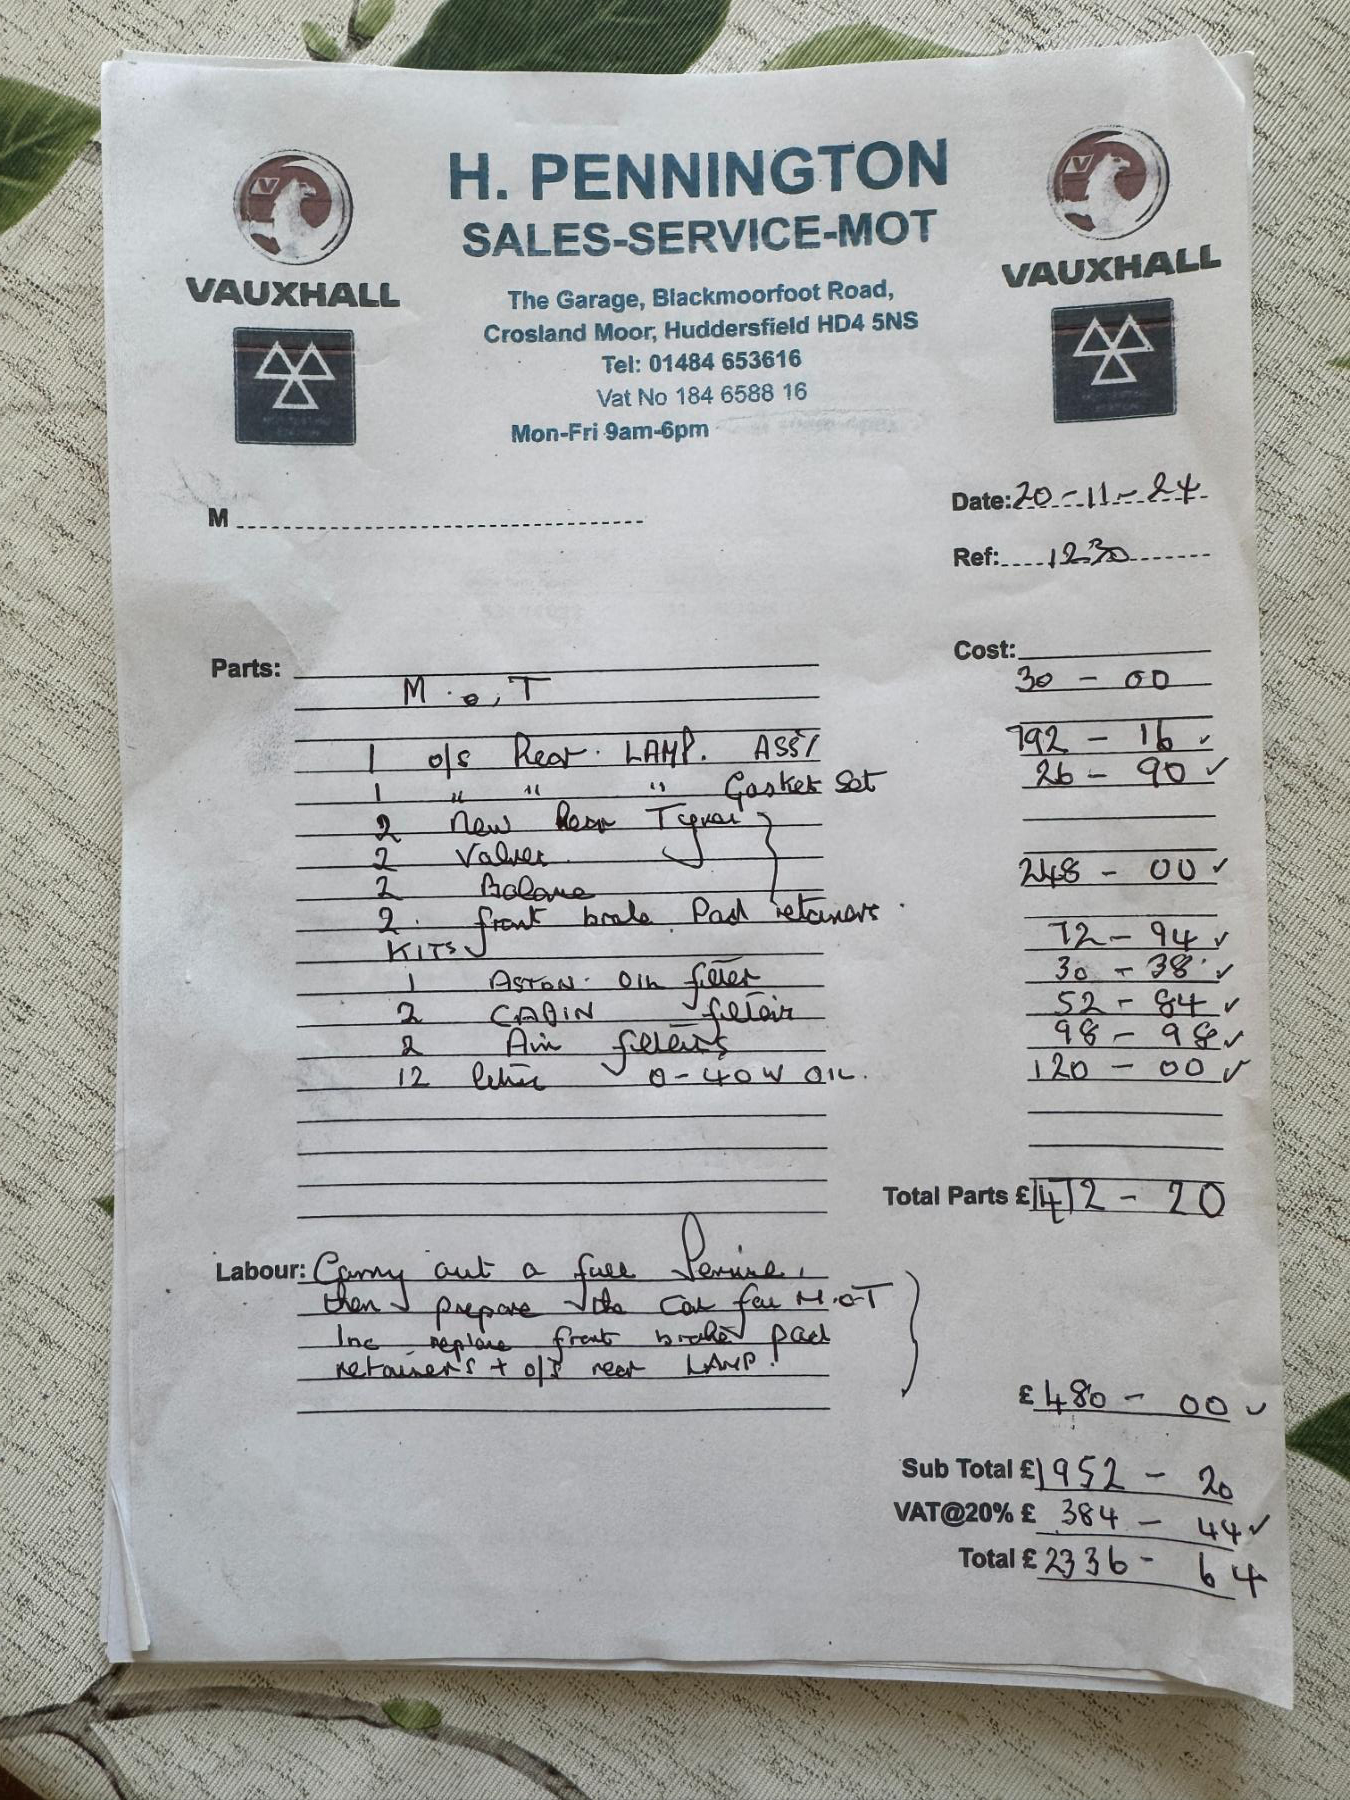 H. PENNINGTON
SALES-SERVICE-MOT
VAUXHALL
VAUXHALL
The Garage, Blackmoorfoot Road,
Crosland Moor, Huddersfield HD4 5NS
Tel: 01484 653616
Vat No 184 6588 16
Mon-Fri 9am-6pm
Date: 20-11-24
M
Ref: 1230
Parts: Cost:
M.o.T 30 - 00
1 o/s Rear LAMP. ASSY 792 - 16 ✓
1 " " " Gasket Set 26 - 90 ✓
2 New Rear Tyres
2 Valves
2 Balance 248 - 00 ✓
2 front brake Pad retainers
KITS 72 - 94 ✓
1 ASTON OIL filter 30 - 38 ✓
2 CABIN filter 52 - 84 ✓
2 Air filters 98 - 98 ✓
12 litre 0-40W OIL. 120 - 00 ✓
Total Parts £1472 - 20
Labour: Carry out a full Service,
then prepare the Car for M.O.T
Inc replace front brake pad
retainers + o/s rear LAMP.
£480 - 00 ✓
Sub Total £1952 - 20
VAT@20% £ 384 - 44 ✓
Total £2336 - 64